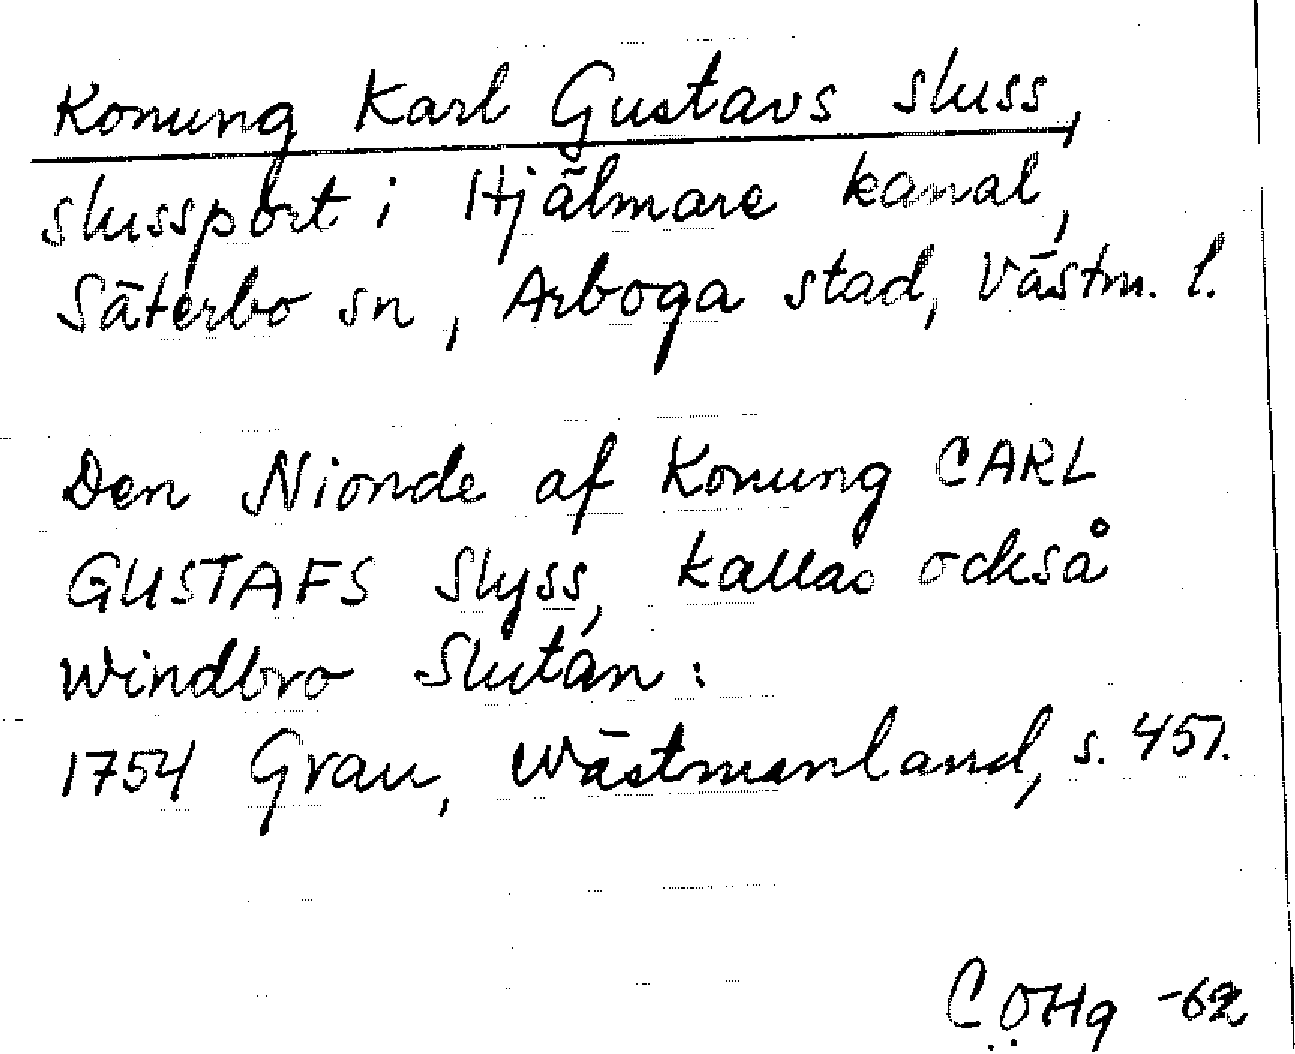 Konung Karl Gustavs sluss,
slussport i Hjälmare kanal,
Säterbo sn, Arboga stad, Västm. l.
Den Nionde af Konung CARL
GUSTAFS Slyss, kallas också
Windbro Slutan:
1754 Grau, Wästmanland, s. 451.
CÖHg -62